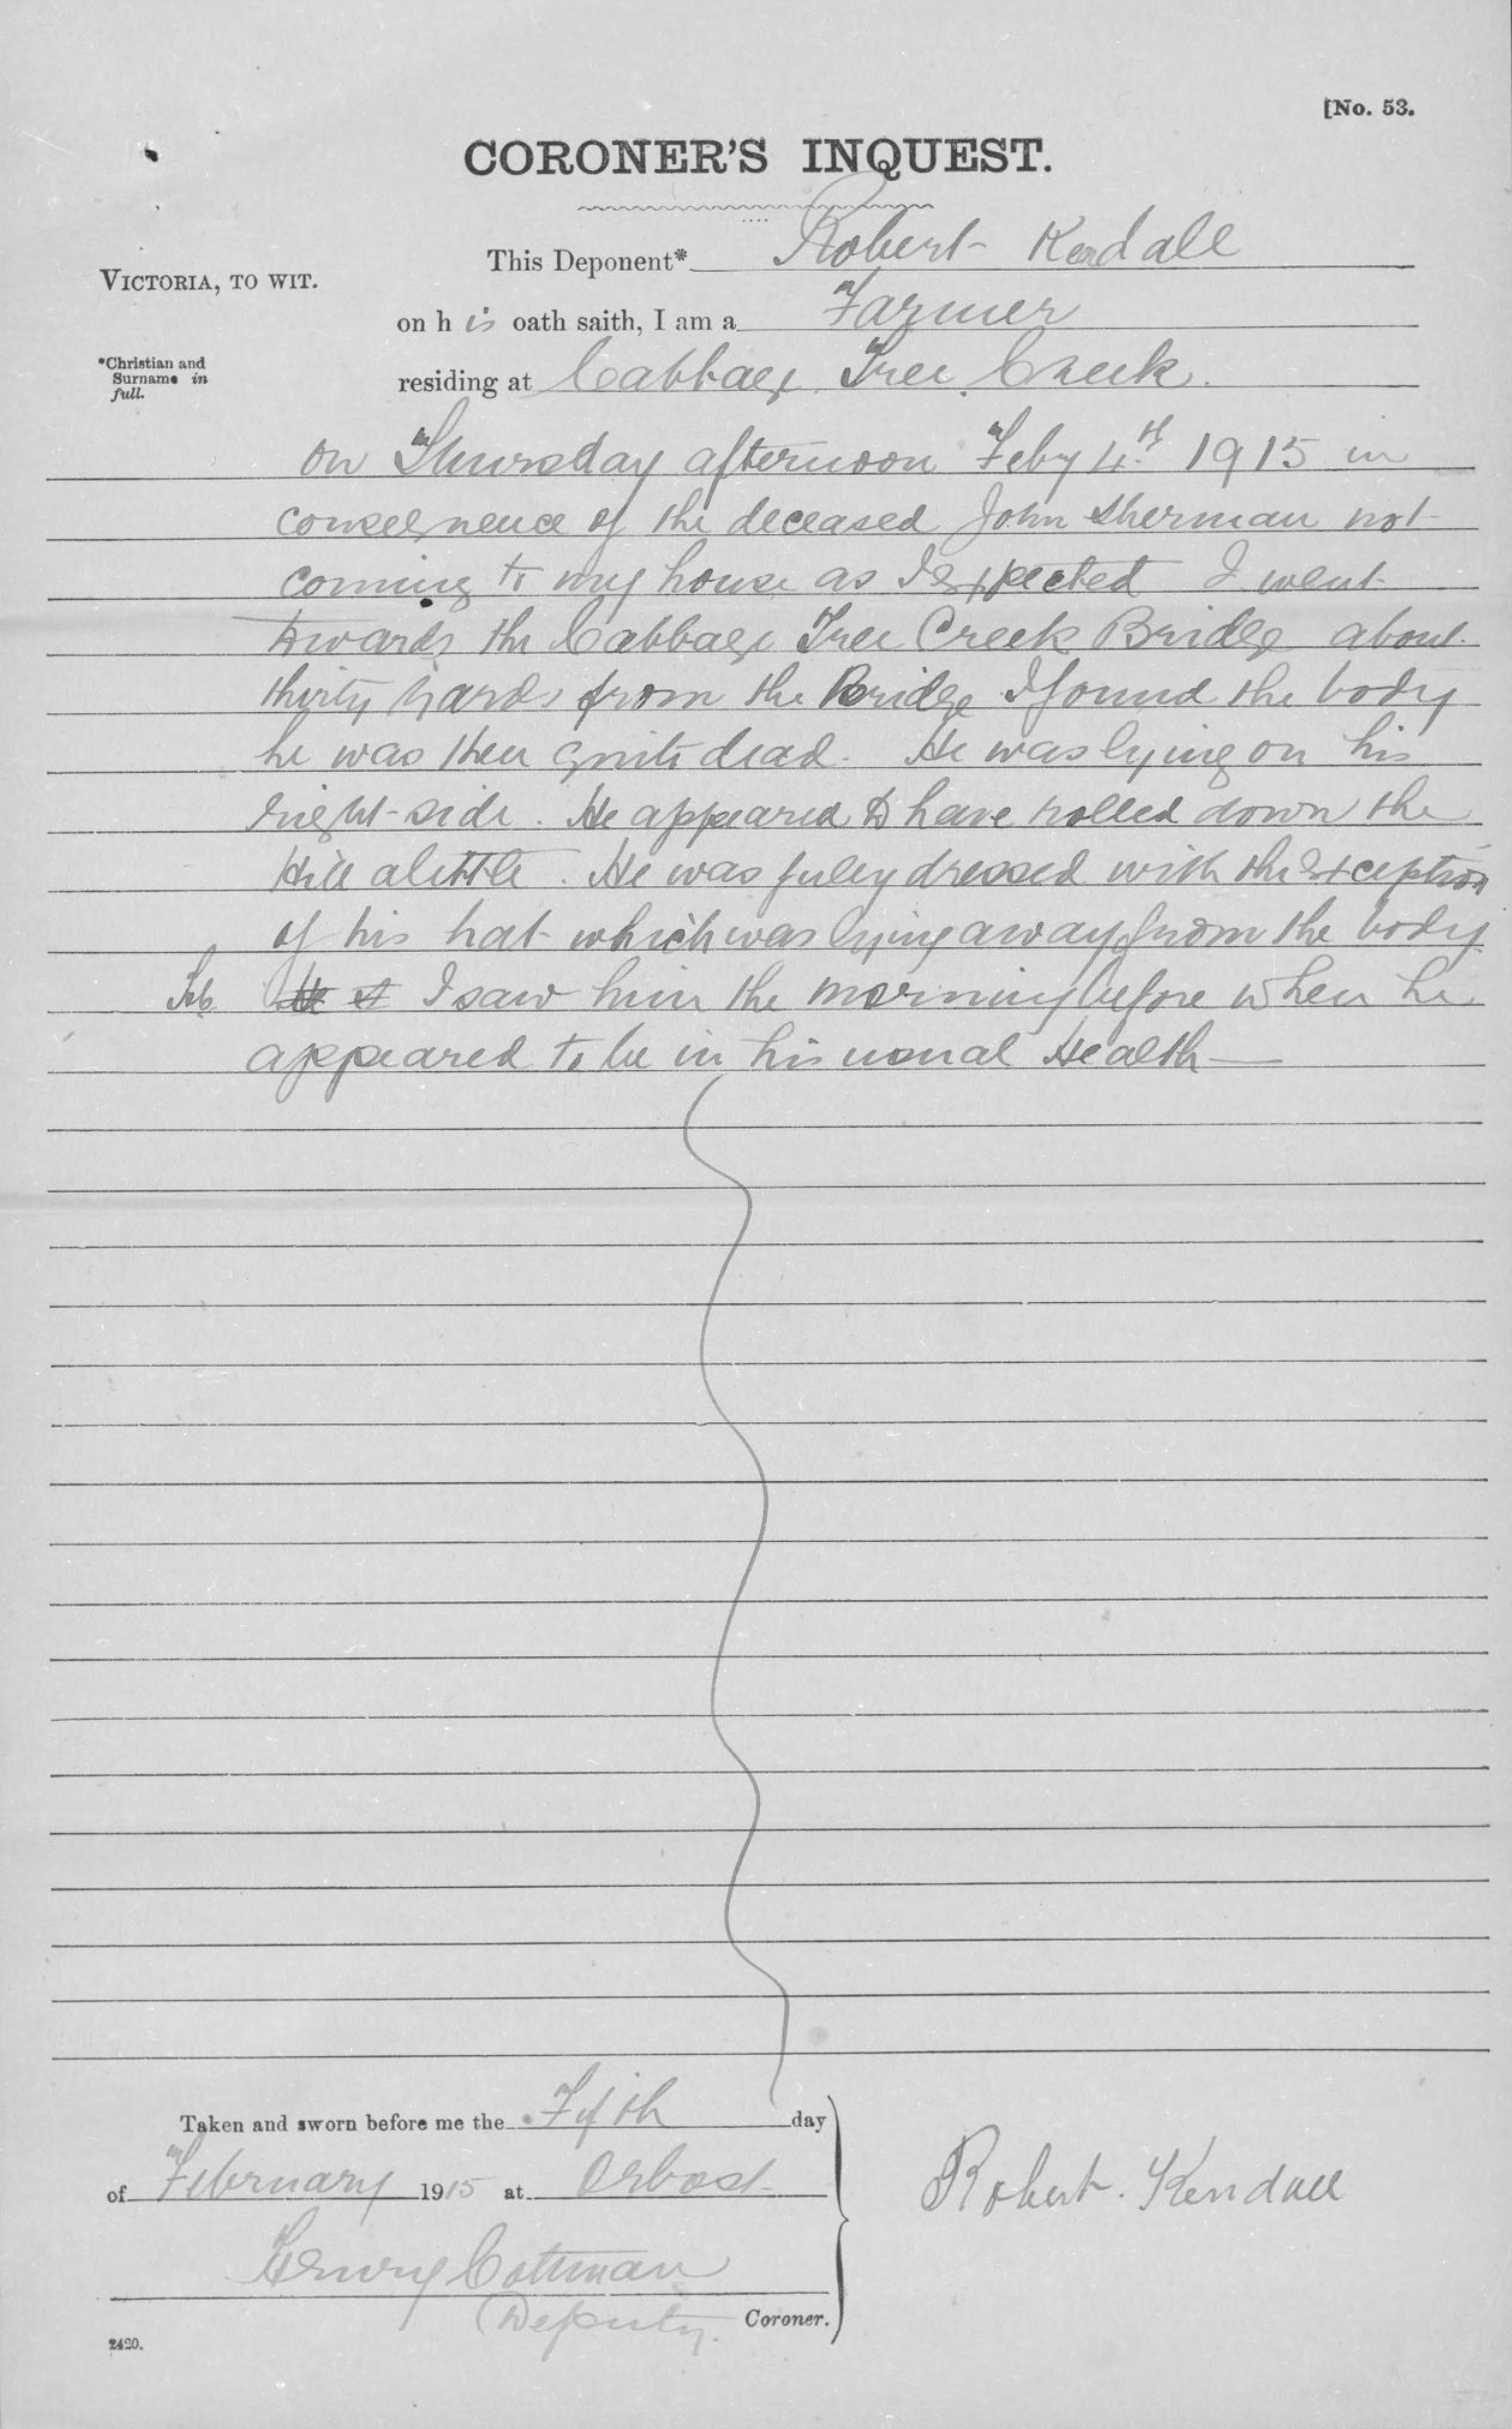 [No. 53.
CORONER'S INQUEST.
This Deponent* Robert Kendall
VICTORIA, TO WIT.
on h is oath saith, I am a Farmer
*Christian and
Surname in
full.
residing at Cabbage Tree Creek.
on Thursday afternoon Feby 4th 1915 in
consequence of the deceased John Sherman not
coming to my house as I expected I went
towards the Cabbage Tree Creek Bridge about
thirty yards from the Bridge I found the body
he was then quite dead. He was lying on his
right side. He appeared to have rolled down the
Hill a little. He was fully dressed with the Exception
of his hat which was lying away from the body
I saw him the morning before when he
appeared to be in his usual Health
Taken and sworn before me the Fifth day
of February 1915 at Orbost
Robert. Kendall
Henry Cotman
Deputy Coroner.
2420.